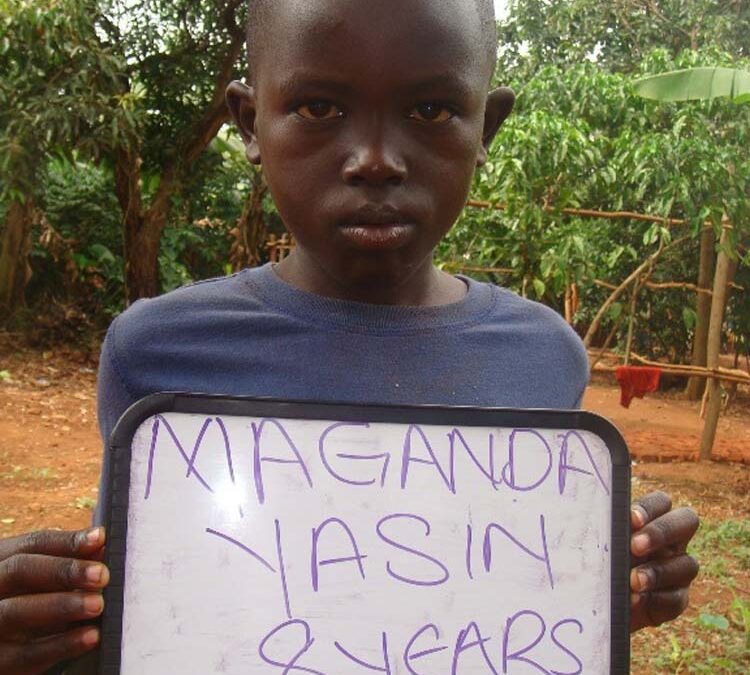 MAGANDA
YASIN
8 YEARS